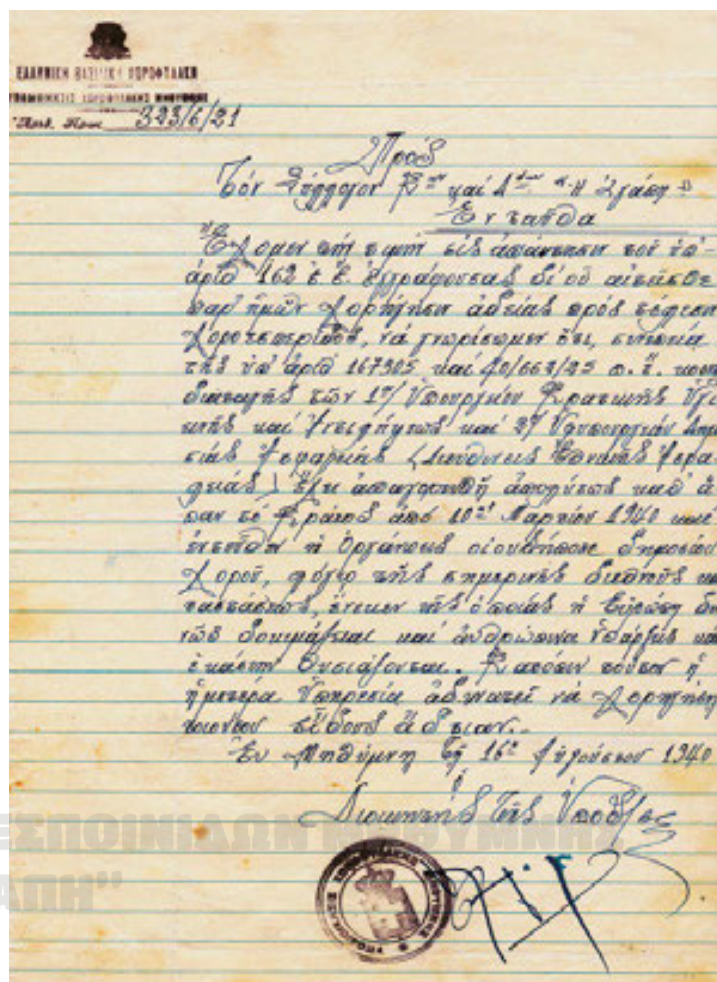 ΕΛΛΗΝΙΚΗ ΒΑΣΙΛΙΚΗ ΧΩΡΟΦΥΛΑΚΗ
ΥΠΟΔΙΟΙΚΗΣΙΣ ΧΩΡΟΦΥΛΑΚΗΣ ΜΗΘΥΜΝΗΣ
Ἀριθ. Πρωτ. 323/6/21
Πρός
Τόν Σύλλογον Κ^ων καί Δ^ων «Ἡ Ἀγάπη»
Ἐνταῦθα
Ἔχομεν τήν τιμήν εἰς ἀπάντησιν τοῦ ὑπ'
ἀριθ 162 ἐ.ἔ. ἐγγράφου σας δι' οὗ αἰτεῖσθε
παρ' ἡμῶν χορήγησιν ἀδείας πρός τέλεσιν
χοροεσπερίδος, νά γνωρίσωμεν ὅτι, συνεπείᾳ
τῆς ὑπ' ἀριθ 167305 καί 40/667/25 π. ἔ. κοιν
διαταγῆς τῶν 1ον/ Ὑπουργείου Κρατικῆς Ὑγι
εινῆς καί Ἀντιλήψεως καί 2ον/ Ὑφυπουργείου Δημο
σίας Ἀσφαλείας (Διεύθυνσις Ἐθνικῆς Ἀσφα
λείας) ἔχει ἀπαγορευθῆ ἀπολύτως καθ' ἅ
παν τό Κράτος ἀπό 10ης Μαρτίου 1940 καί
ἐντεῦθεν ἡ ὀργάνωσις οἱουδήποτε δημοσίου
χοροῦ, λόγῳ τῆς σημερινῆς διεθνοῦς κα
ταστάσεως, ἕνεκεν τῆς ὁποίας ἡ Εὐρώπη δει
νῶς δοκιμάζεται καί ἀνθρώπιναι ὑπάρξεις καθ'
ἑκάστην θυσιάζονται. Κατόπιν τούτου ἡ
ἡμετέρα Ὑπηρεσία ἀδυνατεῖ νά χορηγήσῃ
τοιούτου εἴδους ἄδειαν.-
Ἐν Μηθύμνῃ τῇ 16ῃ Αὐγούστου 1940
Ὁ
Διοικητής τῆς Ὑποδ/σεως
ΕΣΠΟΙΝΙΔΩΝ ΜΗΘΥΜΝΗΣ
ΑΠΗ"